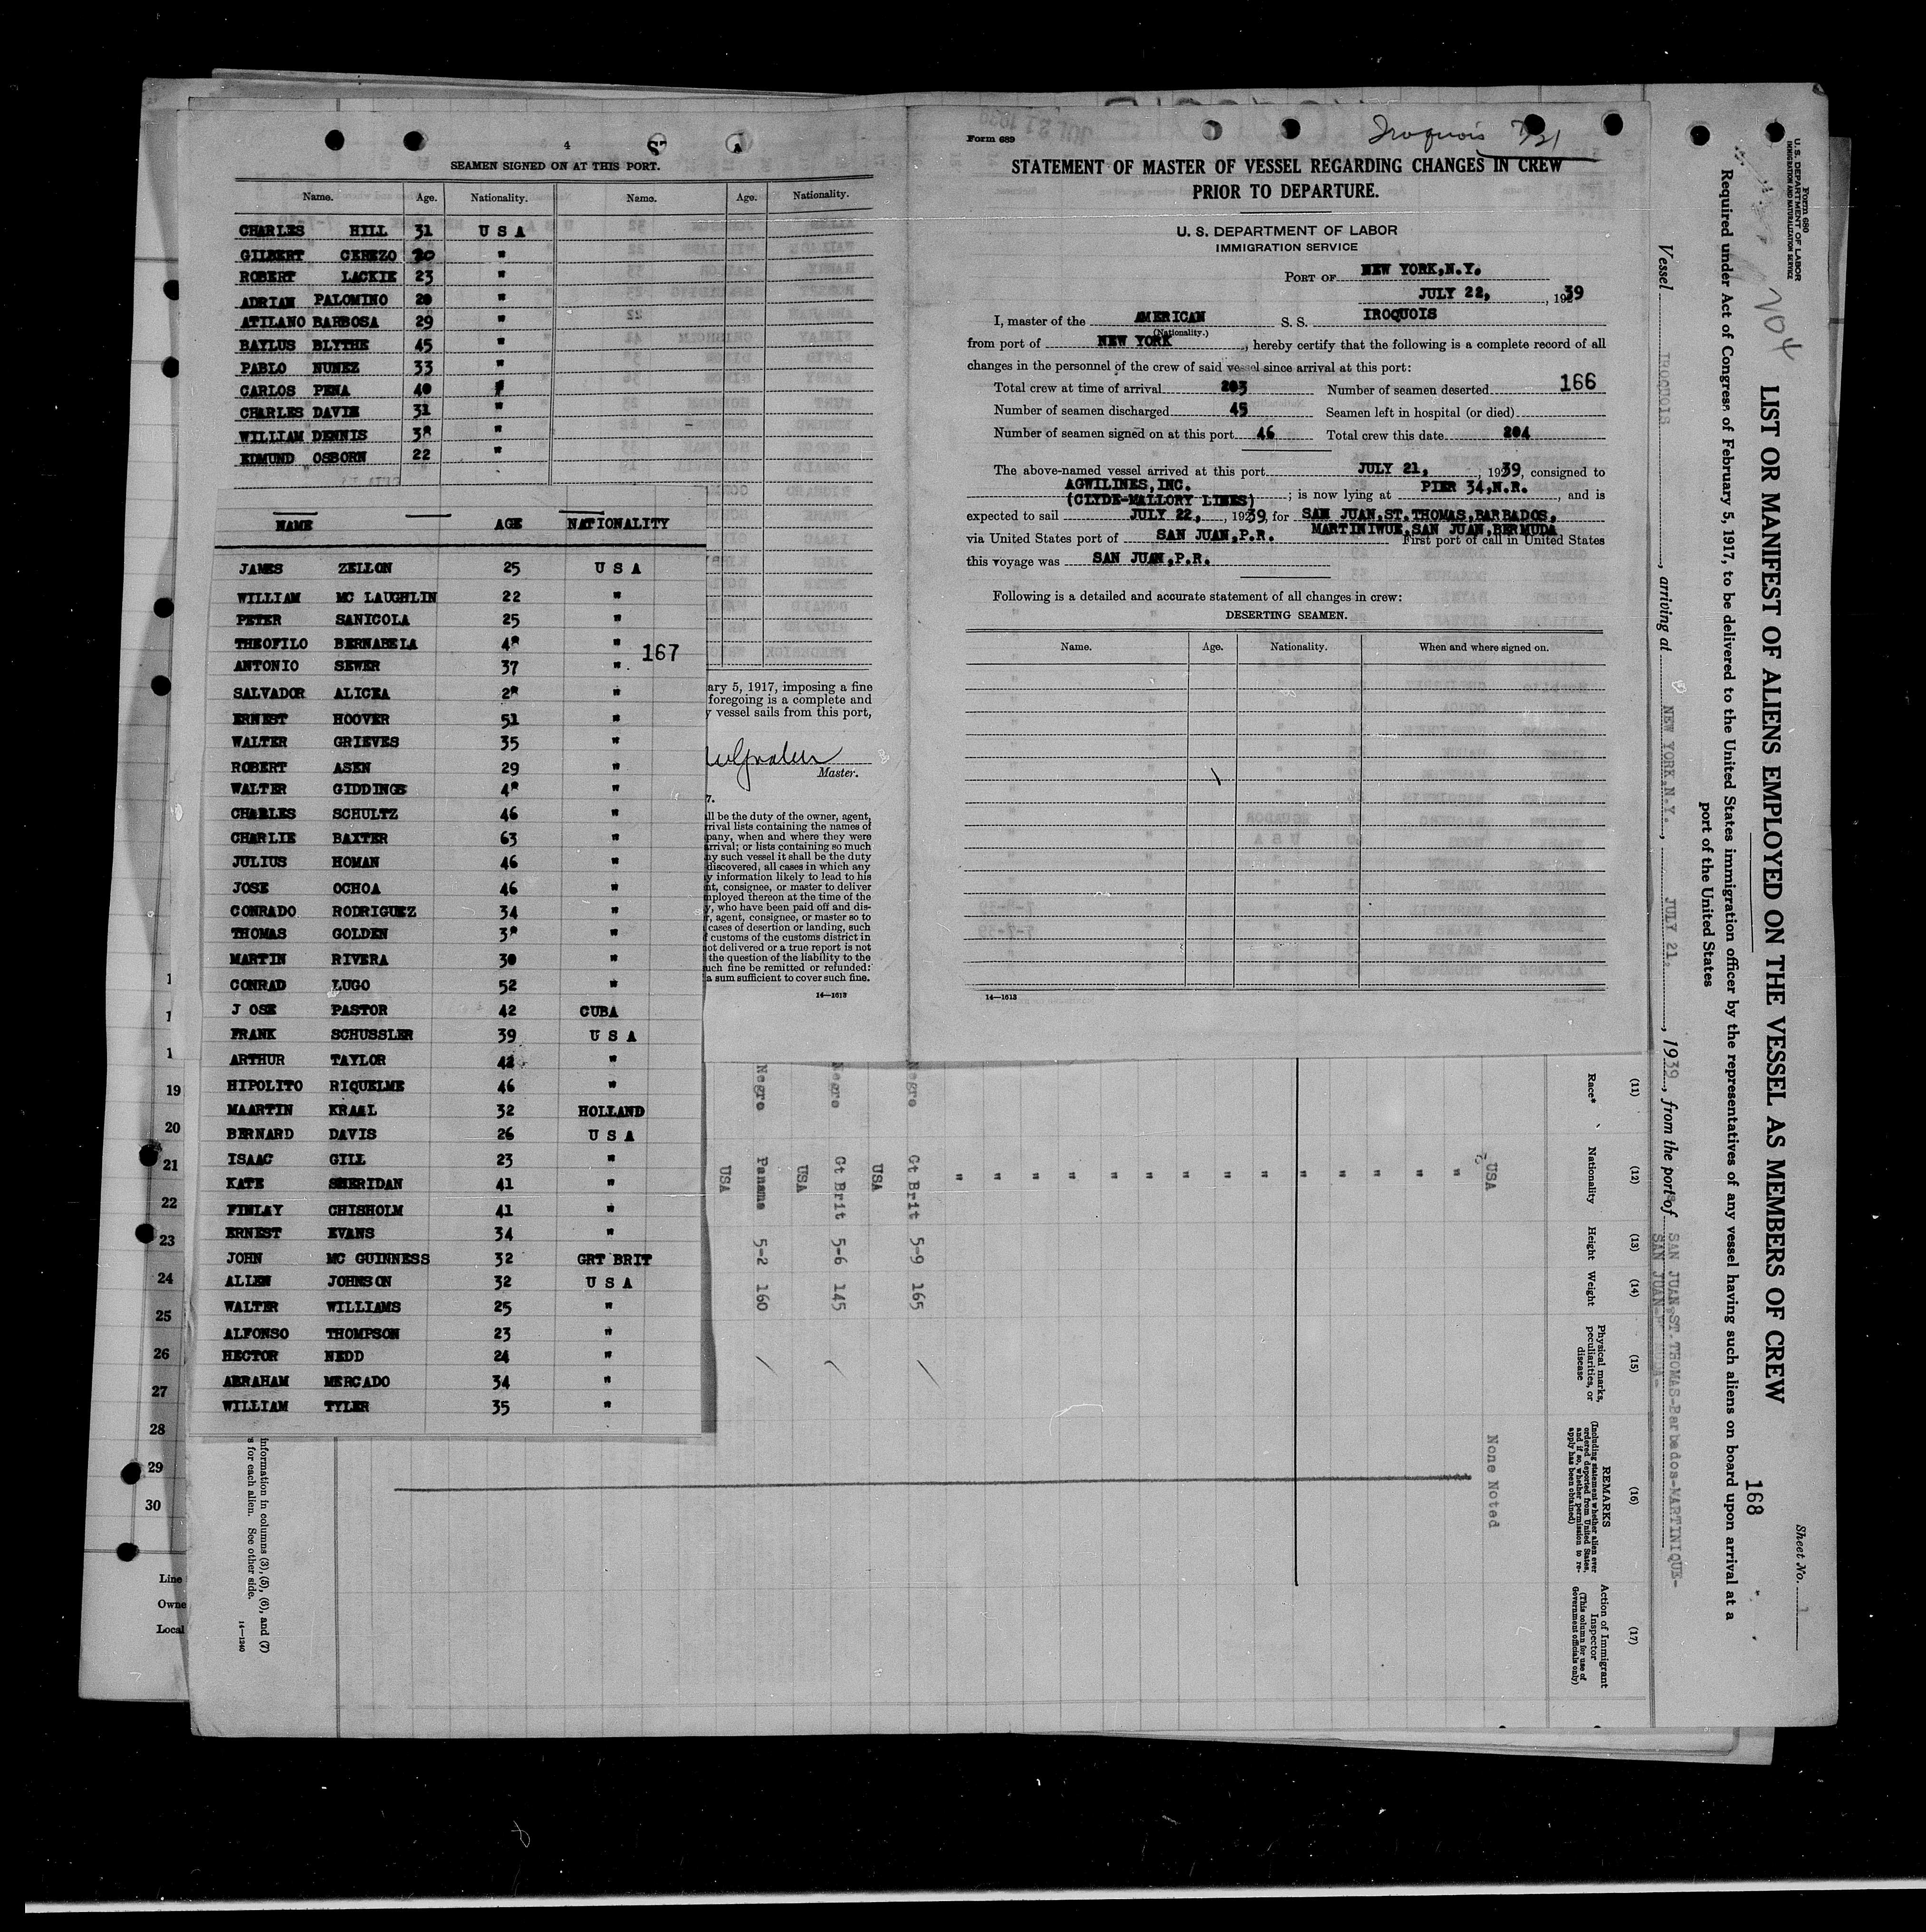 4
SEAMEN SIGNED ON AT THIS PORT.
Name. Age. Nationality. Name. Age. Nationality.
CHARLES HILL 31 U S A
GILBERT CEREZO 20 "
ROBERT LACKIE 23 "
ADRIAN PALOMINO 20 "
ATILANO BARBOSA 29 "
BAYLUS BLYTHE 45 "
PABLO NUNEZ 33 "
CARLOS PENA 40 "
CHARLES DAVIE 31 "
WILLIAM DENNIS 38 "
EDMUND OSBORN 22 "
NAME AGE NATIONALITY
JAMES ZELLON 25 U S A
WILLIAM MC LAUGHLIN 22 "
PETER SANICOLA 25 "
THEOFILO BERNABELA 48 "
167
ANTONIO SEWER 37 "
SALVADOR ALICEA 28 "
ERNEST HOOVER 51 "
WALTER GRIEVES 35 "
ROBERT ASEN 29 "
WALTER GIDDINGS 48 "
CHARLES SCHULTZ 46 "
CHARLIE BAXTER 63 "
JULIUS HOMAN 46 "
JOSE OCHOA 46 "
CONRADO RODRIGUEZ 34 "
THOMAS GOLDEN 38 "
MARTIN RIVERA 30 "
CONRAD LUGO 52 "
J OSE PASTOR 42 CUBA
FRANK SCHUSSLER 39 U S A
ARTHUR TAYLOR 42 "
HIPOLITO RIQUELME 46 "
MAARTIN KRAAL 32 HOLLAND
BERNARD DAVIS 26 U S A
ISAAC GILL 23 "
KATE SHERIDAN 41 "
FINLAY CHISHOLM 41 "
ERNEST EVANS 34 "
JOHN MC GUINNESS 32 GRT BRIT
ALLEN JOHNSON 32 U S A
WALTER WILLIAMS 25 "
ALFONSO THOMPSON 23 "
HECTOR NEDD 24 "
ABRAHAM MERCADO 34 "
WILLIAM TYLER 35 "
ary 5, 1917, imposing a fine
foregoing is a complete and
vessel sails from this port,
Master.
7.
ll be the duty of the owner, agent,
rrival lists containing the names of
pany, when and where they were
arrival; or lists containing so much
ny such vessel it shall be the duty
discovered, all cases in which any
y information likely to lead to his
nt, consignee, or master to deliver
mployed thereon at the time of the
y, who have been paid off and dis-
r, agent, consignee, or master so to
cases of desertion or landing, such
f customs of the customs district in
not delivered or a true report is not
the question of the liability to the
uch fine be remitted or refunded:
a sum sufficient to cover such fine.
14—1613
Form 689
Iroquois 7/21
STATEMENT OF MASTER OF VESSEL REGARDING CHANGES IN CREW
PRIOR TO DEPARTURE.
U. S. DEPARTMENT OF LABOR
IMMIGRATION SERVICE
PORT OF NEW YORK,N.Y.
JULY 22, , 1939
I, master of the AMERICAN S. S. IROQUOIS
(Nationality.)
from port of NEW YORK, hereby certify that the following is a complete record of all
changes in the personnel of the crew of said vessel since arrival at this port:
Total crew at time of arrival 203 Number of seamen deserted 166
Number of seamen discharged 45 Seamen left in hospital (or died)
Number of seamen signed on at this port 46 Total crew this date 204
The above-named vessel arrived at this port JULY 21, , 1939, consigned to
AGWILINES, INC.
(CLYDE-MALLORY LINES) ; is now lying at PIER 34,N.R. , and is
expected to sail JULY 22, , 1939, for SAN JUAN,ST.THOMAS,BARBADOS,
MARTINIWUE,SAN JUAN,BERMUDA
via United States port of SAN JUAN,P.R. First port of call in United States
this voyage was SAN JUAN,P.R.
Following is a detailed and accurate statement of all changes in crew:
DESERTING SEAMEN.
Name. Age. Nationality. When and where signed on.
14—1613
Form 680
U. S. DEPARTMENT OF LABOR
IMMIGRATION AND NATURALIZATION SERVICE
Sheet No. 1
204
168
LIST OR MANIFEST OF ALIENS EMPLOYED ON THE VESSEL AS MEMBERS OF CREW
Required under Act of Congress of February 5, 1917, to be delivered to the United States immigration officer by the representatives of any vessel having such aliens on board upon arrival at a
port of the United States
Vessel IROQUOIS , arriving at NEW YORK N.Y. , JULY 21. , 1939 , from the ports of SAN JUAN,ST.THOMAS-Barbados-MARTINIQUE-
SAN JUAN-
(11) (12) (13) (14) (15) (16) (17)
Race* Nationality Height Weight
Physical marks, peculiarities, or disease
REMARKS
(Including statement whether alien ever ordered deported from United States, and if so, whether permission to reapply has been obtained)
Action of Immigrant Inspector
(This column for use of Government officials only)
USA None Noted
Negro Gt Brit 5-9 165
USA
Negro Gt Brit 5-6 145
USA
Negro Panama 5-2 160
USA
19
20
21
22
23
24
25
26
27
28
29
30
Line
Owne
Local
information in columns (3), (5), (6), and (7)
s for each alien. See other side.
14—1240